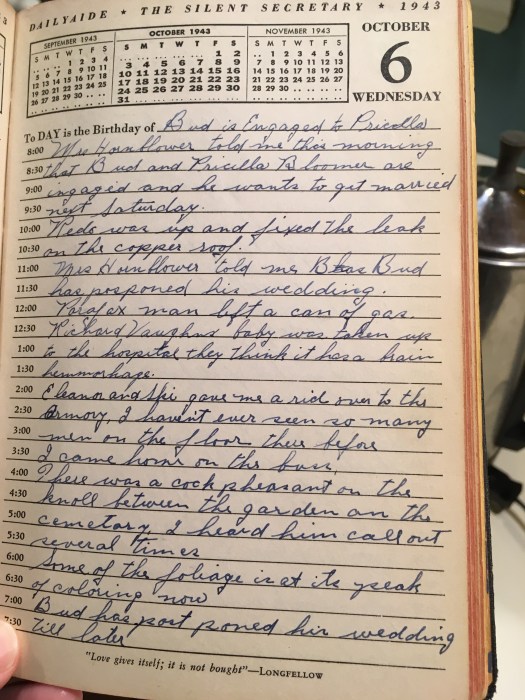 DAILYAIDE ★ THE SILENT SECRETARY ★ 1943
SEPTEMBER 1943
S M T W T F S
. . . . . . 1 2 3 4
5 6 7 8 9 10 11
12 13 14 15 16 17 18
19 20 21 22 23 24 25
26 27 28 29 30 . . . .
OCTOBER 1943
S M T W T F S
1 2
3 4 5 6 7 8 9
10 11 12 13 14 15 16
17 18 19 20 21 22 23
24 25 26 27 28 29 30
31
NOVEMBER 1943
S M T W T F S
. . 1 2 3 4 5 6
7 8 9 10 11 12 13
14 15 16 17 18 19 20
21 22 23 24 25 26 27
28 29 30 . . . . . . . .
OCTOBER
6
WEDNESDAY
To DAY is the Birthday of Bud is Engaged to Pricilla
8:00 Mrs Hornblower told me this morning
8:30 that Bud and Pricilla Bloomer are
9:00 engaged and he wants to get married
9:30 next Saturday.
10:00 was up and fixed the leak
10:30 on the copper roof.
11:00 Mrs Hornblower told me Bud
11:30 has posponed his wedding.
12:00 Parafax man left a can of gas.
12:30 Richard Vaughns baby was taken up
1:00 to the hospital they think it has a brain
1:30 hemmorhage.
2:00 Eleanor and gave me a rid over to the
2:30 Armory, I havent ever seen so many
3:00 men on the floor there before
3:30 I came home on the buss,
4:00 There was a cock pheasant on the
4:30 knoll between the garden an the
5:00 cemetary, I heard him call out
5:30 several times
6:00 Some of the foliage is at its peak
6:30 of coloring now
7:00 Bud has post poned his wedding
7:30 till later
"Love gives itself; it is not bought"—LONGFELLOW